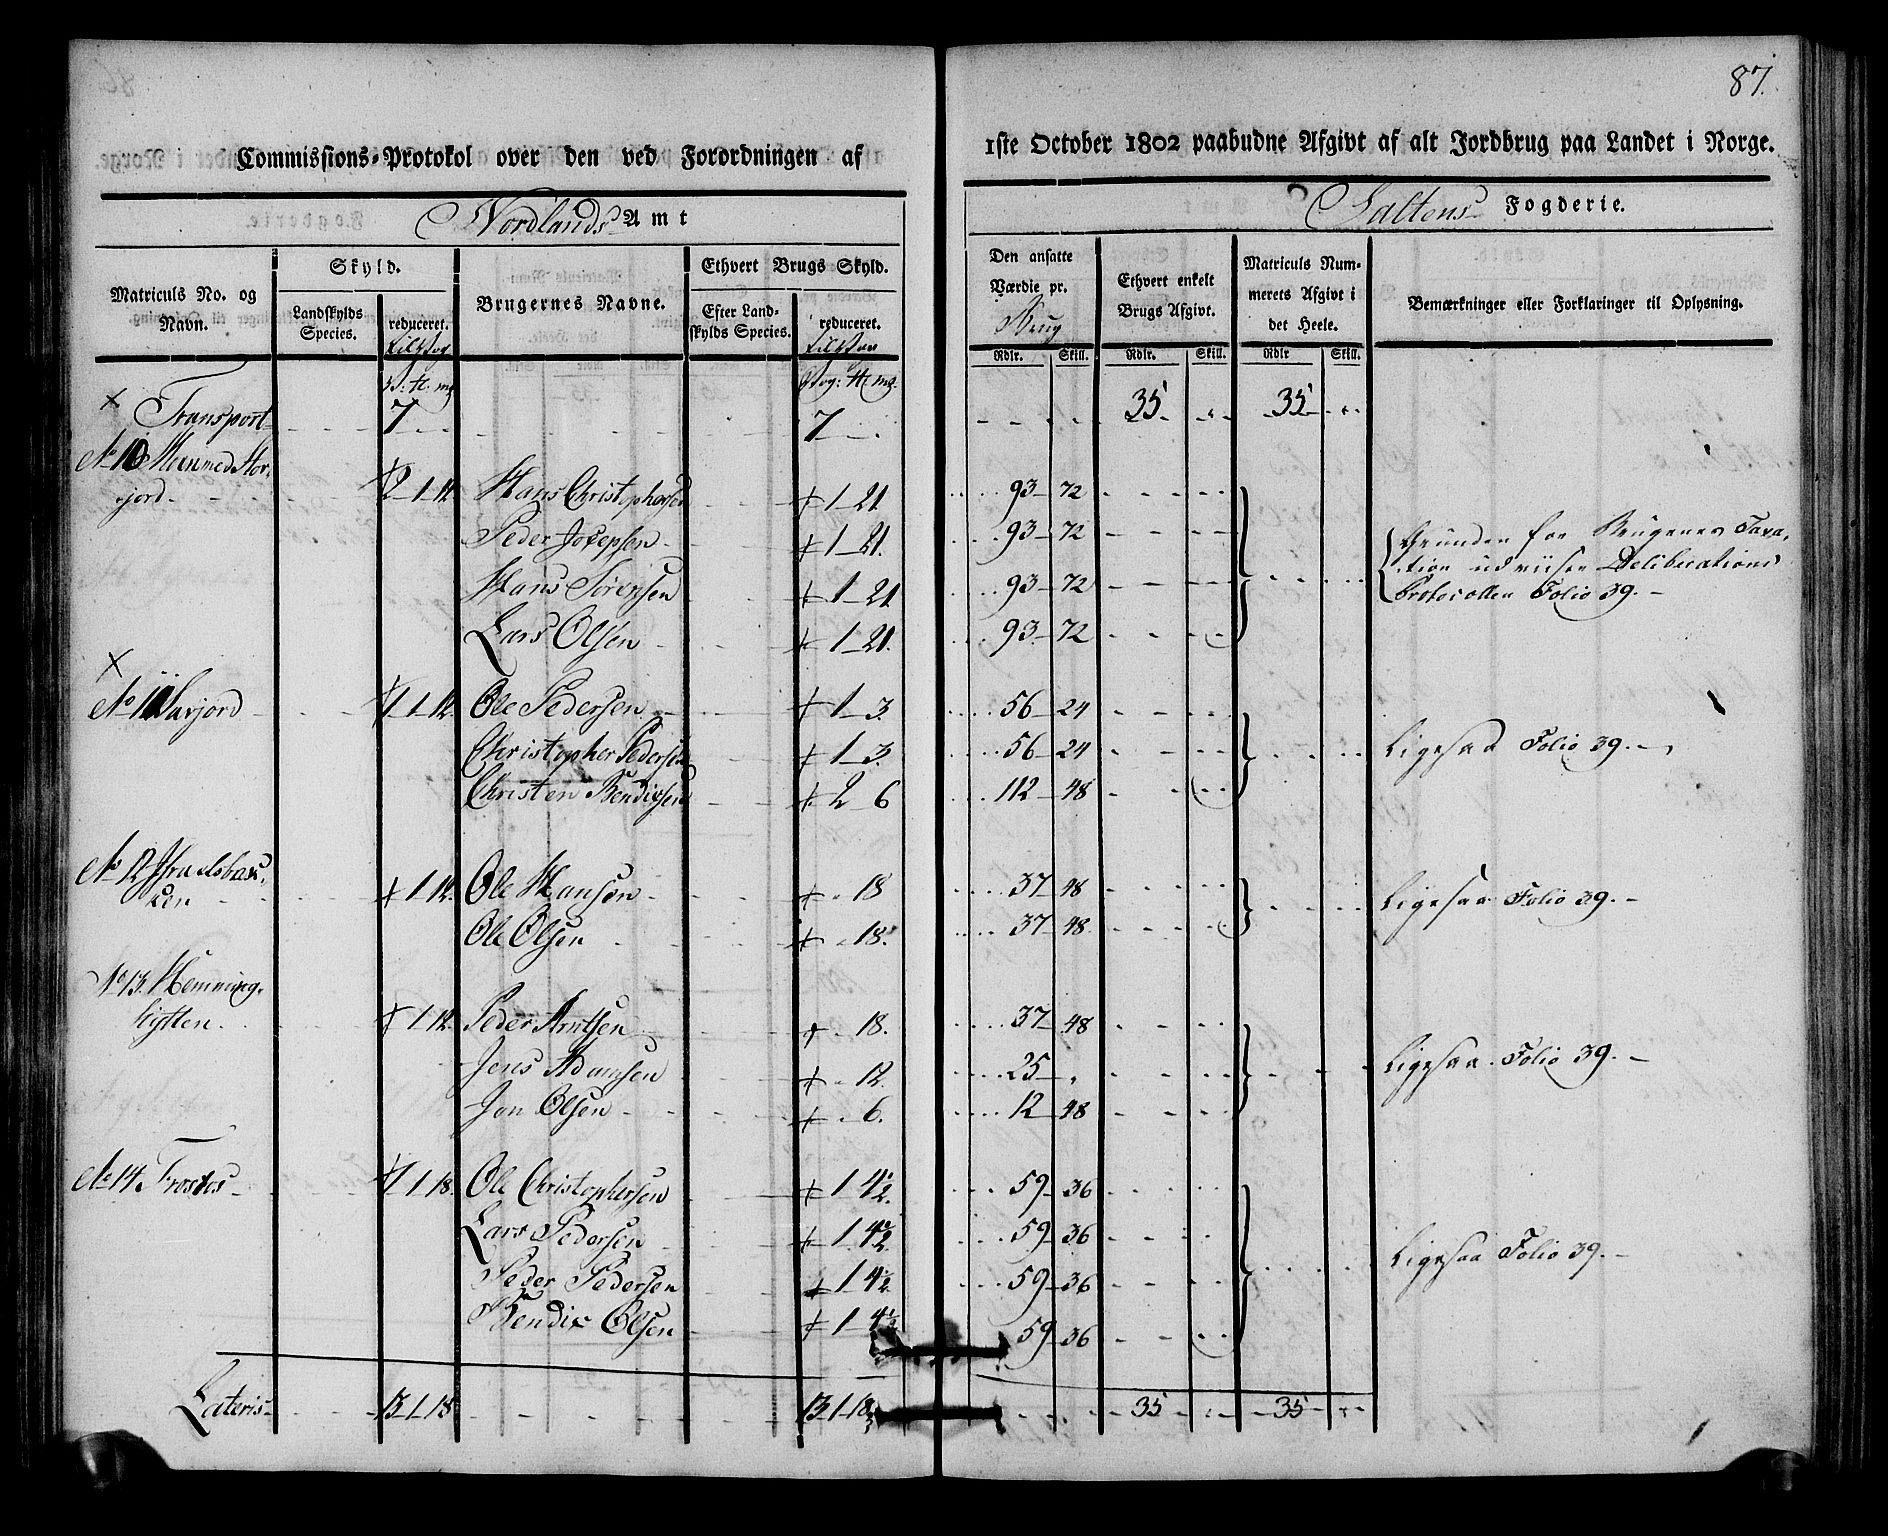 87.
Commissions-Protokol over den ved Forordningen af
1ste October 1802 paabudne Afgivt af alt Jordbrug paa Landet i Norge.
Nordlands Amt
Saltens Fogderie.
Matriculs No. og Navn.
Skyld.
Landskylds Species.
reduceret.
Brugernes Navne.
Ethvert Brugs Skyld.
Efter Landskylds Species.
reduceret.
Den ansatte Værdie pr. Brug
Rdlr. Skill.
Ethvert enkelt Brugs Afgivt.
Rdlr. Skill.
Matriculs Nummerets Afgivt i det Heele.
Rdlr Skill.
Bemærkninger eller Forklaringer til Oplysning.
Transport 7 7 35 35
No 10 jord 2-1-12. Hans Christophersen 1-21 93-72
Peder Josepsen 1-21. 93-72 Grunden for Brugenes Taxa-
Hans Sørensen 1-21 93-72 tion udviiser Deliberations
Lars Olsen 1-21. 93-72 Protocollen Folio 39.
No 11 1-1-12. Ole Pedersen 1-3. 56-24
Christopher Pedersen 1-3. 56-24 Ligesaa Folio 39.
Christen Bendixen 2-6 112-48
No 12 Israelsbak-
ken 1-12. Ole Hansen 18 37-48 Ligesaa Folio 39.
Ole Olsen 18. 37-48
No 13. Hemming-
hytten 1-12. Peder Arntsen 18. 37-48
Jens Adamsen 12. 25 Ligesaa Folio 39.
Jon Olsen 6. 12-48
No 14. Frostos 1-1-18. Ole Christophersen 1 4½. 59-36
Lars Pedersen 1 4½. 59-36 Ligesaa Folio 39.
Peder Pedersen 1 4½ 59-36
Bendix Olsen 1-4½ 59-36
Lateris 13-1-18 13-1-18 35 35